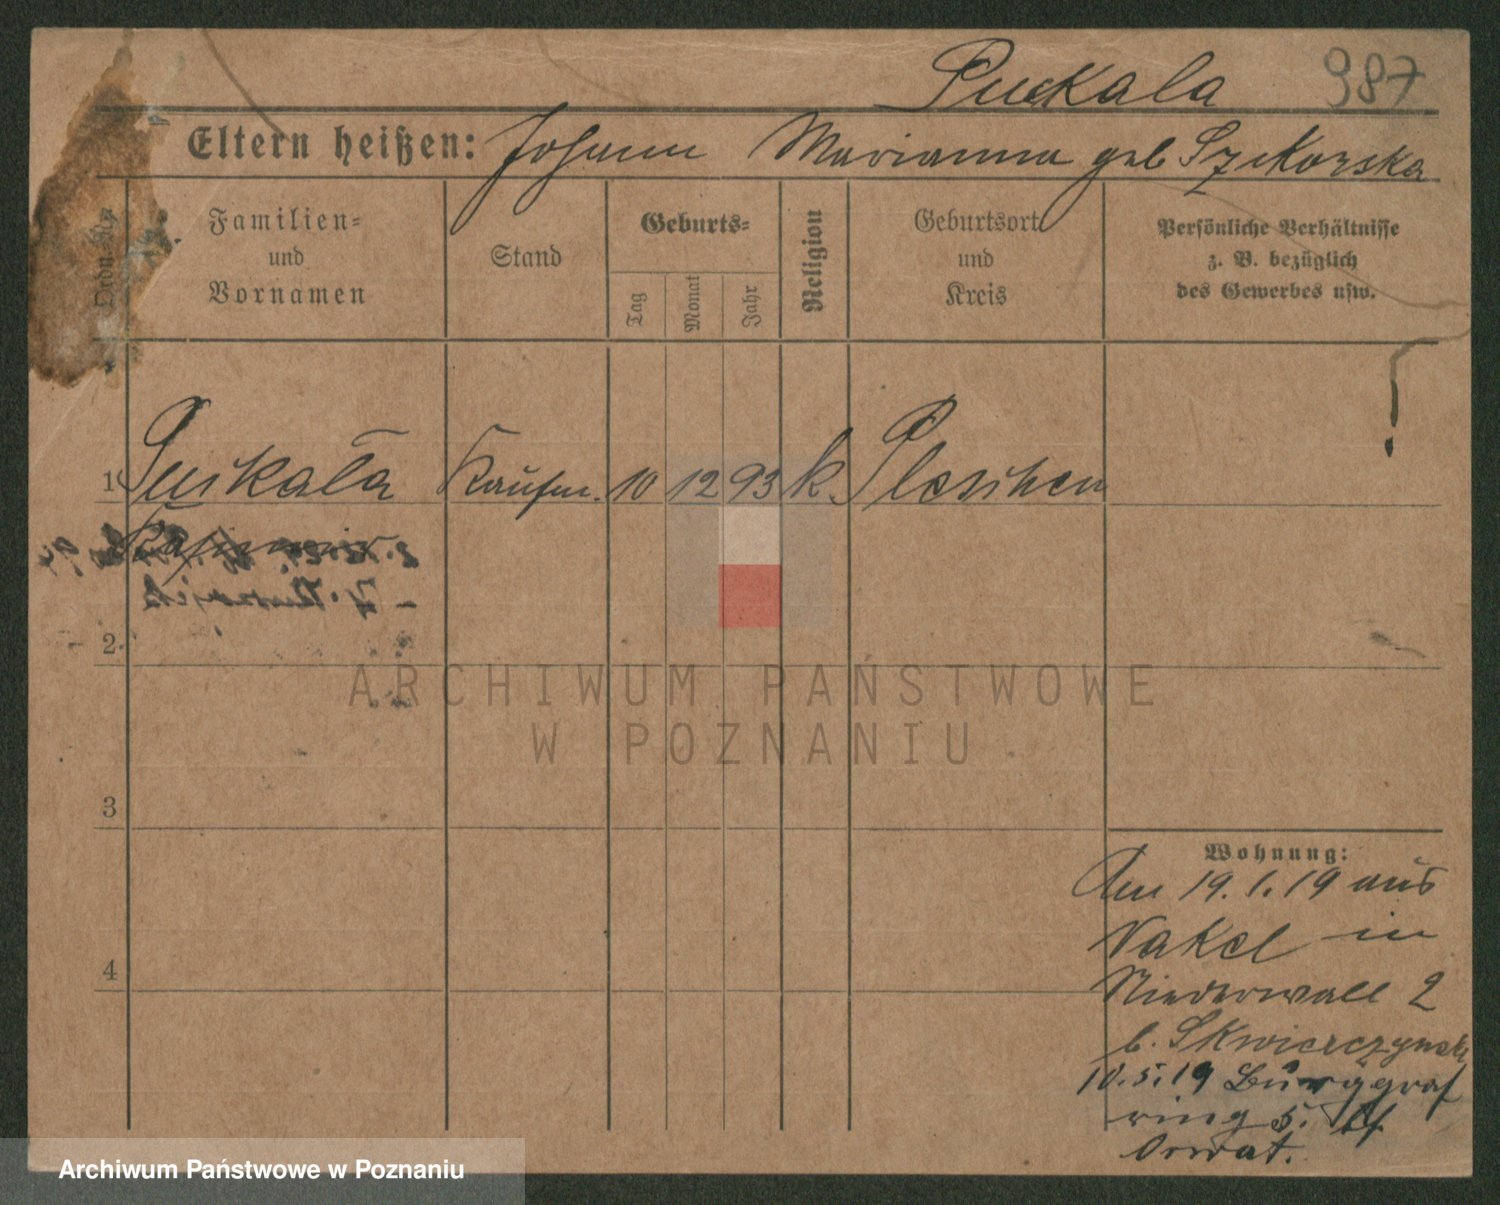 Puckala 987
Eltern heißen: Johann Marianna geb Szikorska
Ordn. Nr.
Familien-
und
Vornamen
Stand
Geburts-
Tag
Monat
Jahr
Religion
Geburtsort
und
Kreis
Persönliche Verhältnisse
z. B. bezüglich
des Gewerbes usw.
1 Puckala Kaufm. 10 12 93 k. Pleschen
Kasimir
2
ARCHIWUM PAŃSTWOWE
W POZNANIU
3
4
Wohnung:
Am 19.1.19 aus
Nakel in
Niederwall 2
b. Skwierczynsk
10.5.19 Burggraf
ring 5. bf
Orwat.
Archiwum Państwowe w Poznaniu